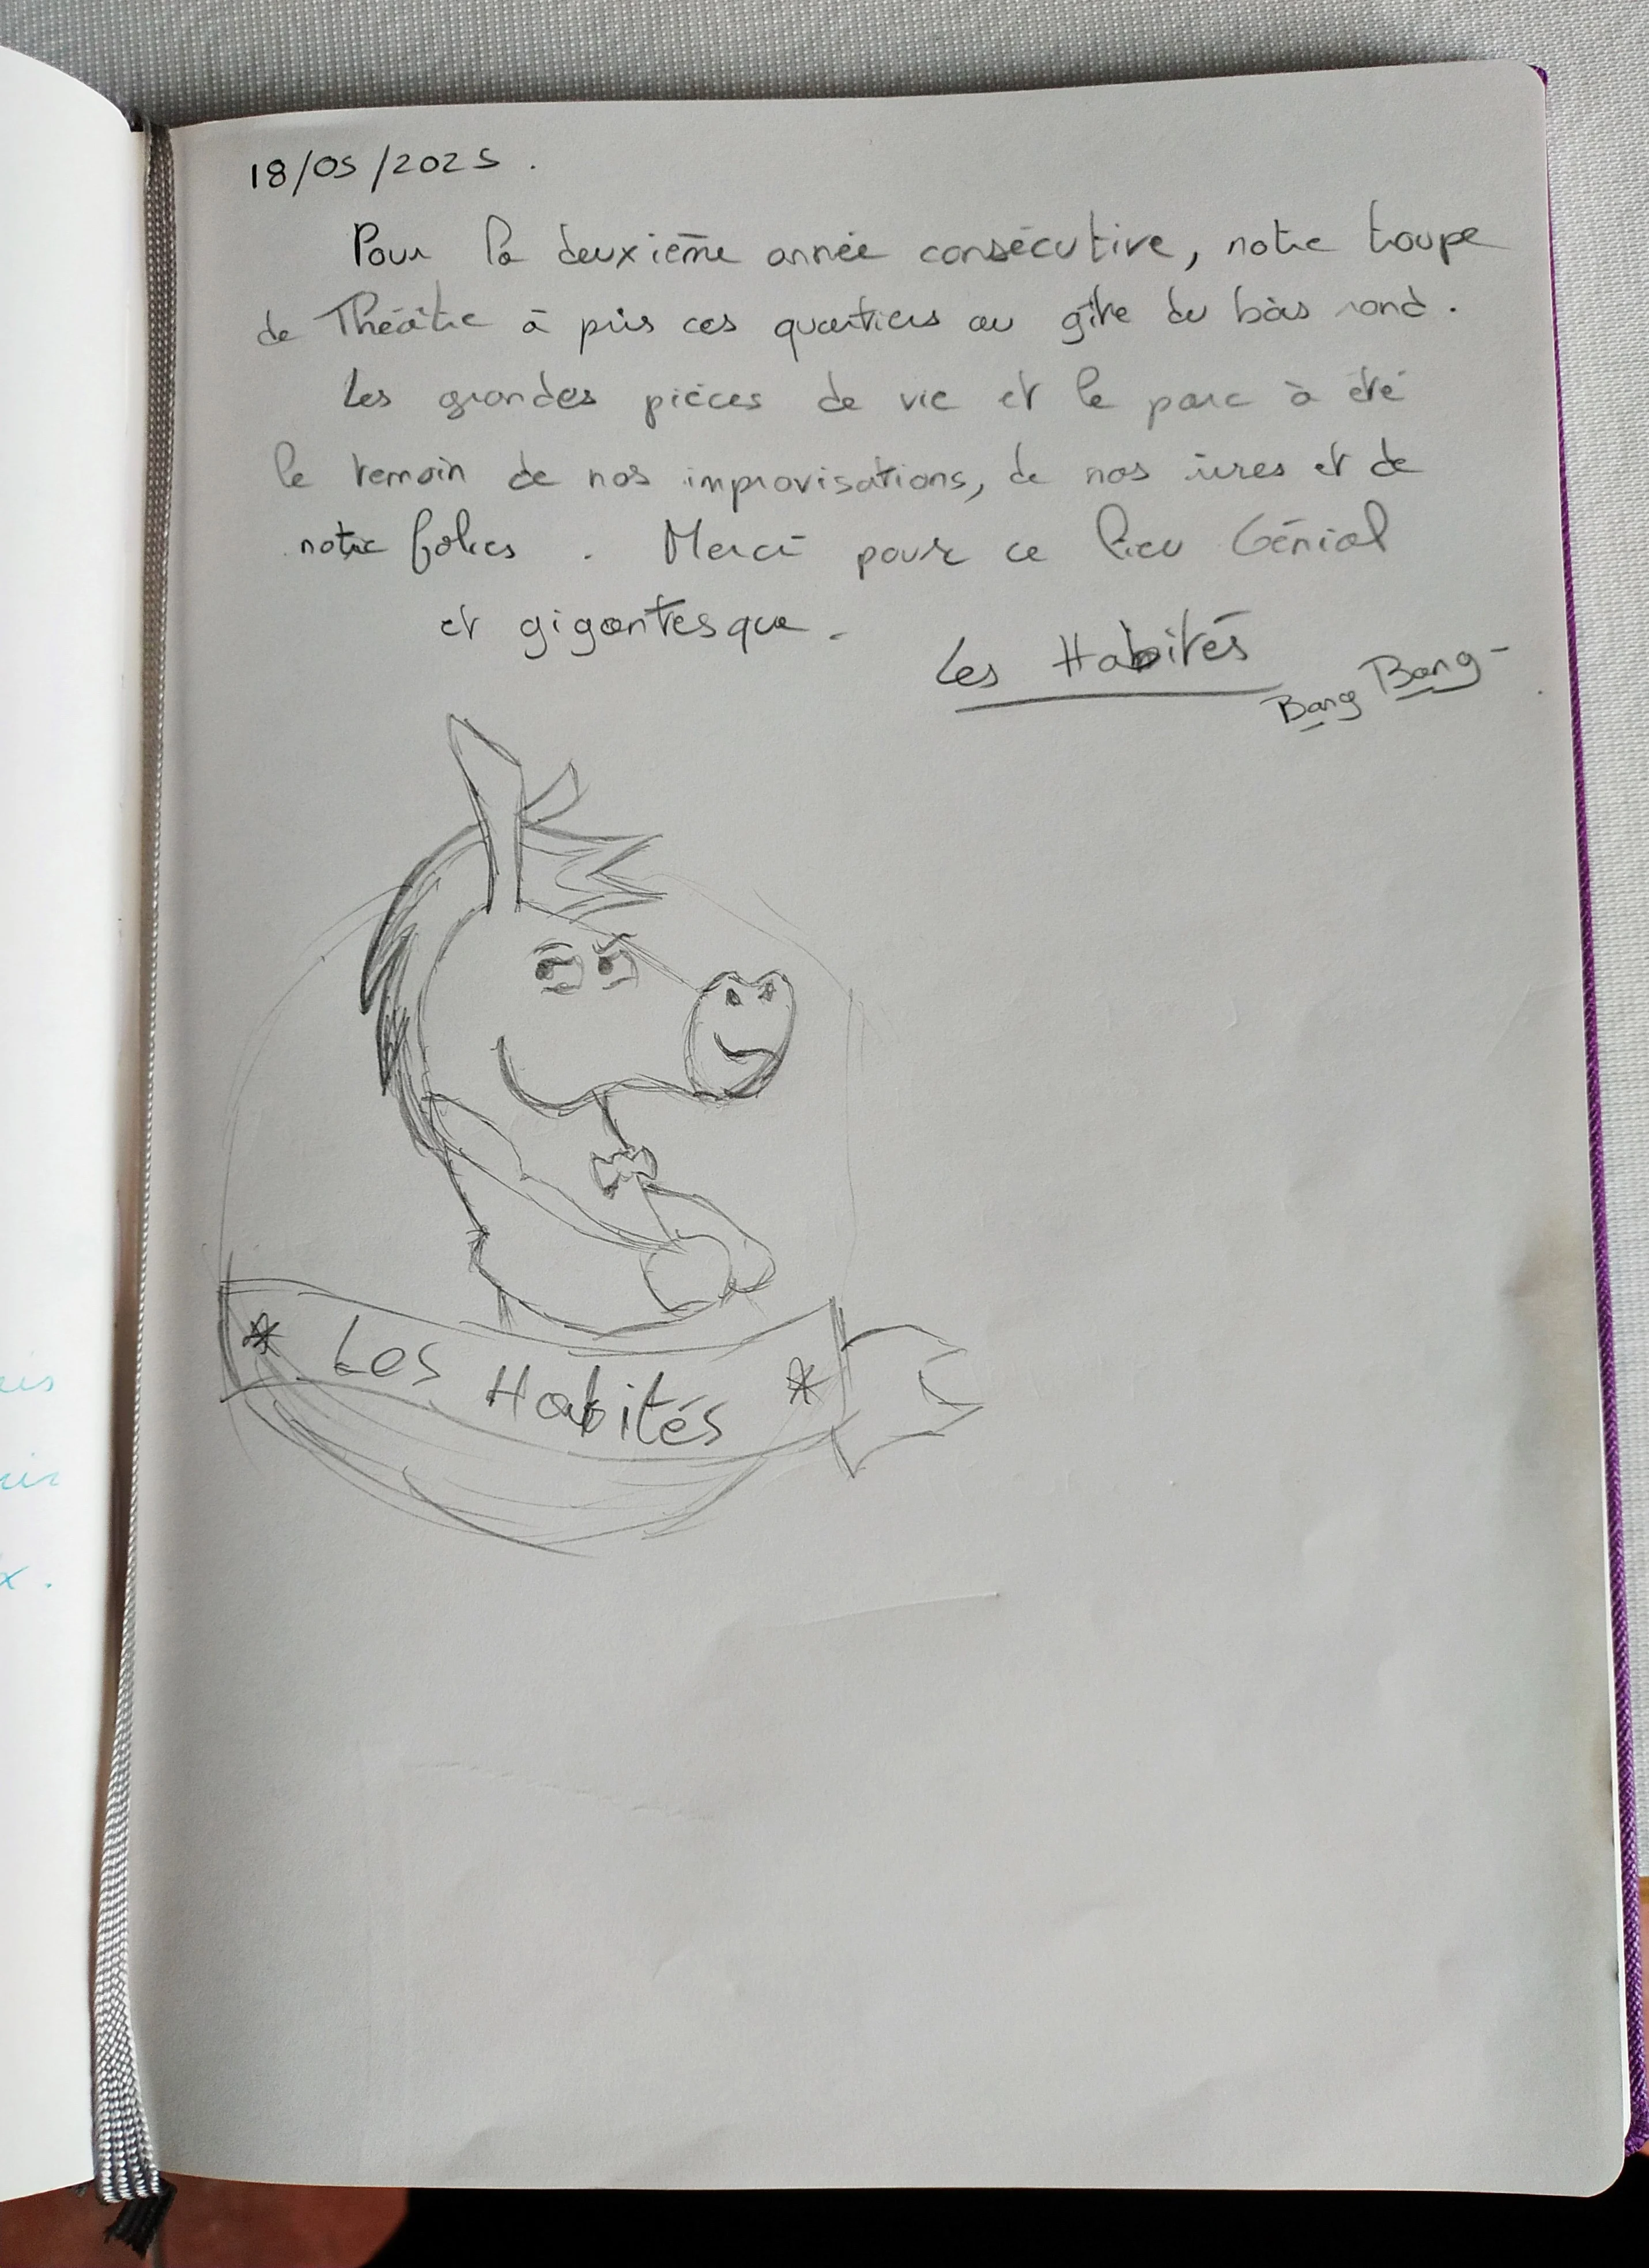 18/05/2025.
Pour la deuxième année consécutive, notre troupe
de Théâtre à pris ces quartiers au gîte du bois rond.
Les grandes pièces de vie et le parc à été
le temoin de nos improvisations, de nos rires et de
notre folies. Merci pour ce lieu Génial
et gigantesque.
Les Habités
Bang Bang
* Les Habités *